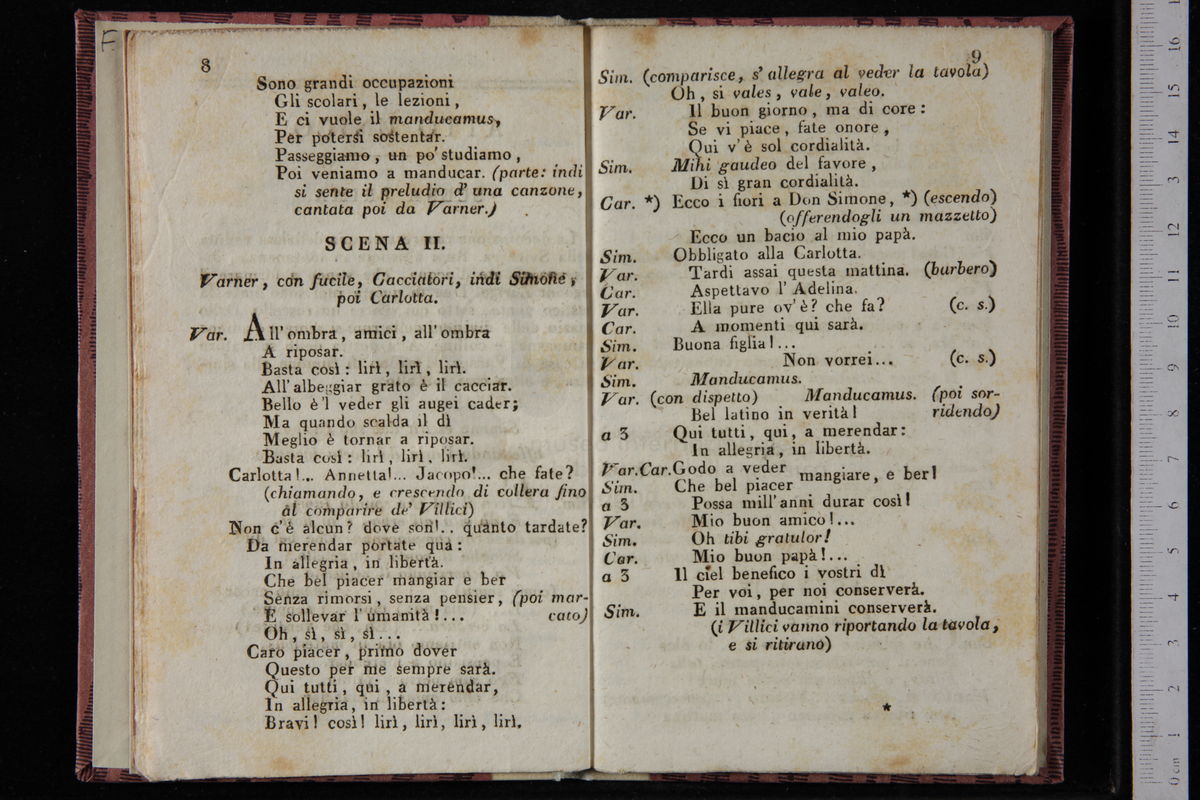 F.
8
Sono grandi occupazioni
Gli scolari, le lezioni,
E ci vuole il manducamus,
Per potersi sostentar.
Passeggiamo, un po' studiamo,
Poi veniamo a manducar. (parte: indi
si sente il preludio d' una canzone,
cantata poi da Varner.)
SCENA II.
Varner, con fucile, Cacciatori, indi Simone,
poi Carlotta.
Var. All' ombra, amici, all' ombra
A riposar.
Basta così: lirì, lirì, lirì.
All' albeggiar grato è il cacciar.
Bello è 'l veder gli augei cader;
Ma quando scalda il dì
Meglio è tornar a riposar.
Basta così: lirì, lirì, lirì.
Carlotta!... Annetta!... Jacopo!... che fate?
(chiamando, e crescendo di collera fino
al comparire de' Villici)
Non c'è alcun? dove son!.. quanto tardate?
Da merendar portate quà:
In allegria, in libertà.
Che bel piacer mangiar e ber
Senza rimorsi, senza pensier, (poi mar-
E sollevar l'umanità!... cato)
Oh, sì, sì, sì...
Caro piacer, primo dover
Questo per me sempre sarà.
Qui tutti, qui, a merendar,
In allegria, in libertà:
Bravi! così! lirì, lirì, lirì, lirì.
9
Sim. (comparisce, s' allegra al veder la tavola)
Oh, si vales, vale, valeo.
Var. Il buon giorno, ma di core:
Se vi piace, fate onore,
Qui v'è sol cordialità.
Sim. Mihi gaudeo del favore,
Di sì gran cordialità.
Car. *) Ecco i fiori a Don Simone, *) (escendo)
(offerendogli un mazzetto)
Ecco un bacio al mio papà.
Sim. Obbligato alla Carlotta.
Var. Tardi assai questa mattina. (burbero)
Car. Aspettavo l' Adelina.
Var. Ella pure ov' è? che fa? (c. s.)
Car. A momenti qui sarà.
Sim. Buona figlia!...
Var. Non vorrei... (c. s.)
Sim. Manducamus.
Var. (con dispetto) Manducamus. (poi sor-
Bel latino in verità! ridendo)
a 3 Qui tutti, qui, a merendar:
In allegria, in libertà.
Var.Car. Godo a veder mangiare, e ber!
Sim. Che bel piacer
a 3 Possa mill' anni durar così!
Var. Mio buon amico!...
Sim. Oh tibi gratulor!
Car. Mio buon papà!...
a 3 Il ciel benefico i vostri dì
Per voi, per noi conserverà.
Sim. E il manducamini conserverà.
(i Villici vanno riportando la tavola,
e si ritirano)
*
0 cm 1 2 3 4 5 6 7 8 9 10 11 12 13 14 15 16